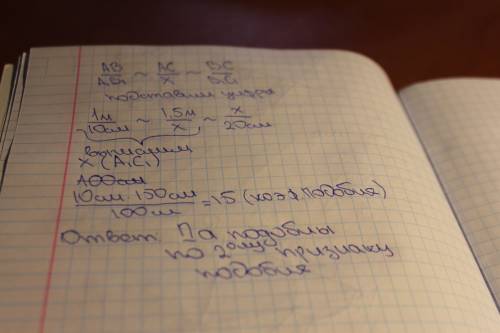 AB/A₁B₁ ~ AC/X ~ BC/B₁C₁
подставим
1м/10см ~ 1,5м/x ~ x/20см
вычислим
X (A₁C₁)
100см
10см · 150см/100см = 15 (коэф. подобия)
Ответ: Да подобны
по 2ому признаку
подобия